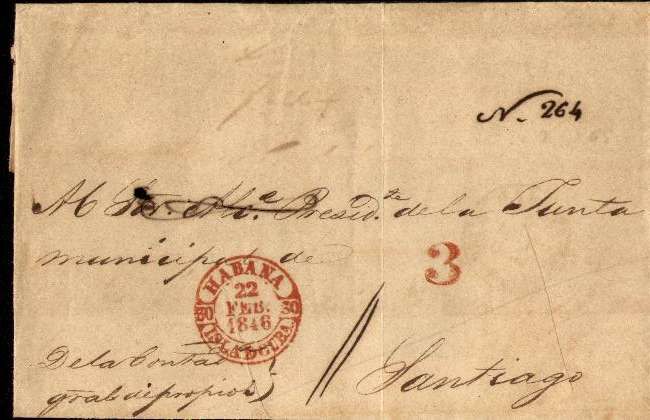 N. 264
Al Sor. Alc.e Presid.te de la Junta
municipal de
3
HABANA
22
FEB.
1846
ISLA DE CUBA
De la Conta
gral de propios
Santiago